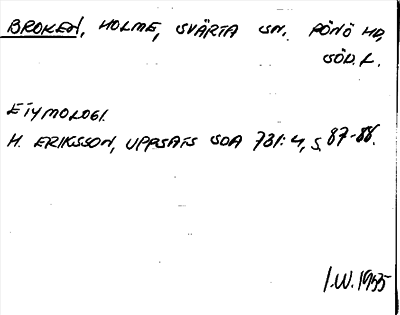 BROKEN, HOLME, SVÄRTA SN. RÖNÖ HD,
SÖD. L.
ETYMOLOGI.
H. ERIKSSON, UPPSATS SOA 731:4, S. 87-88.
I.W. 1955